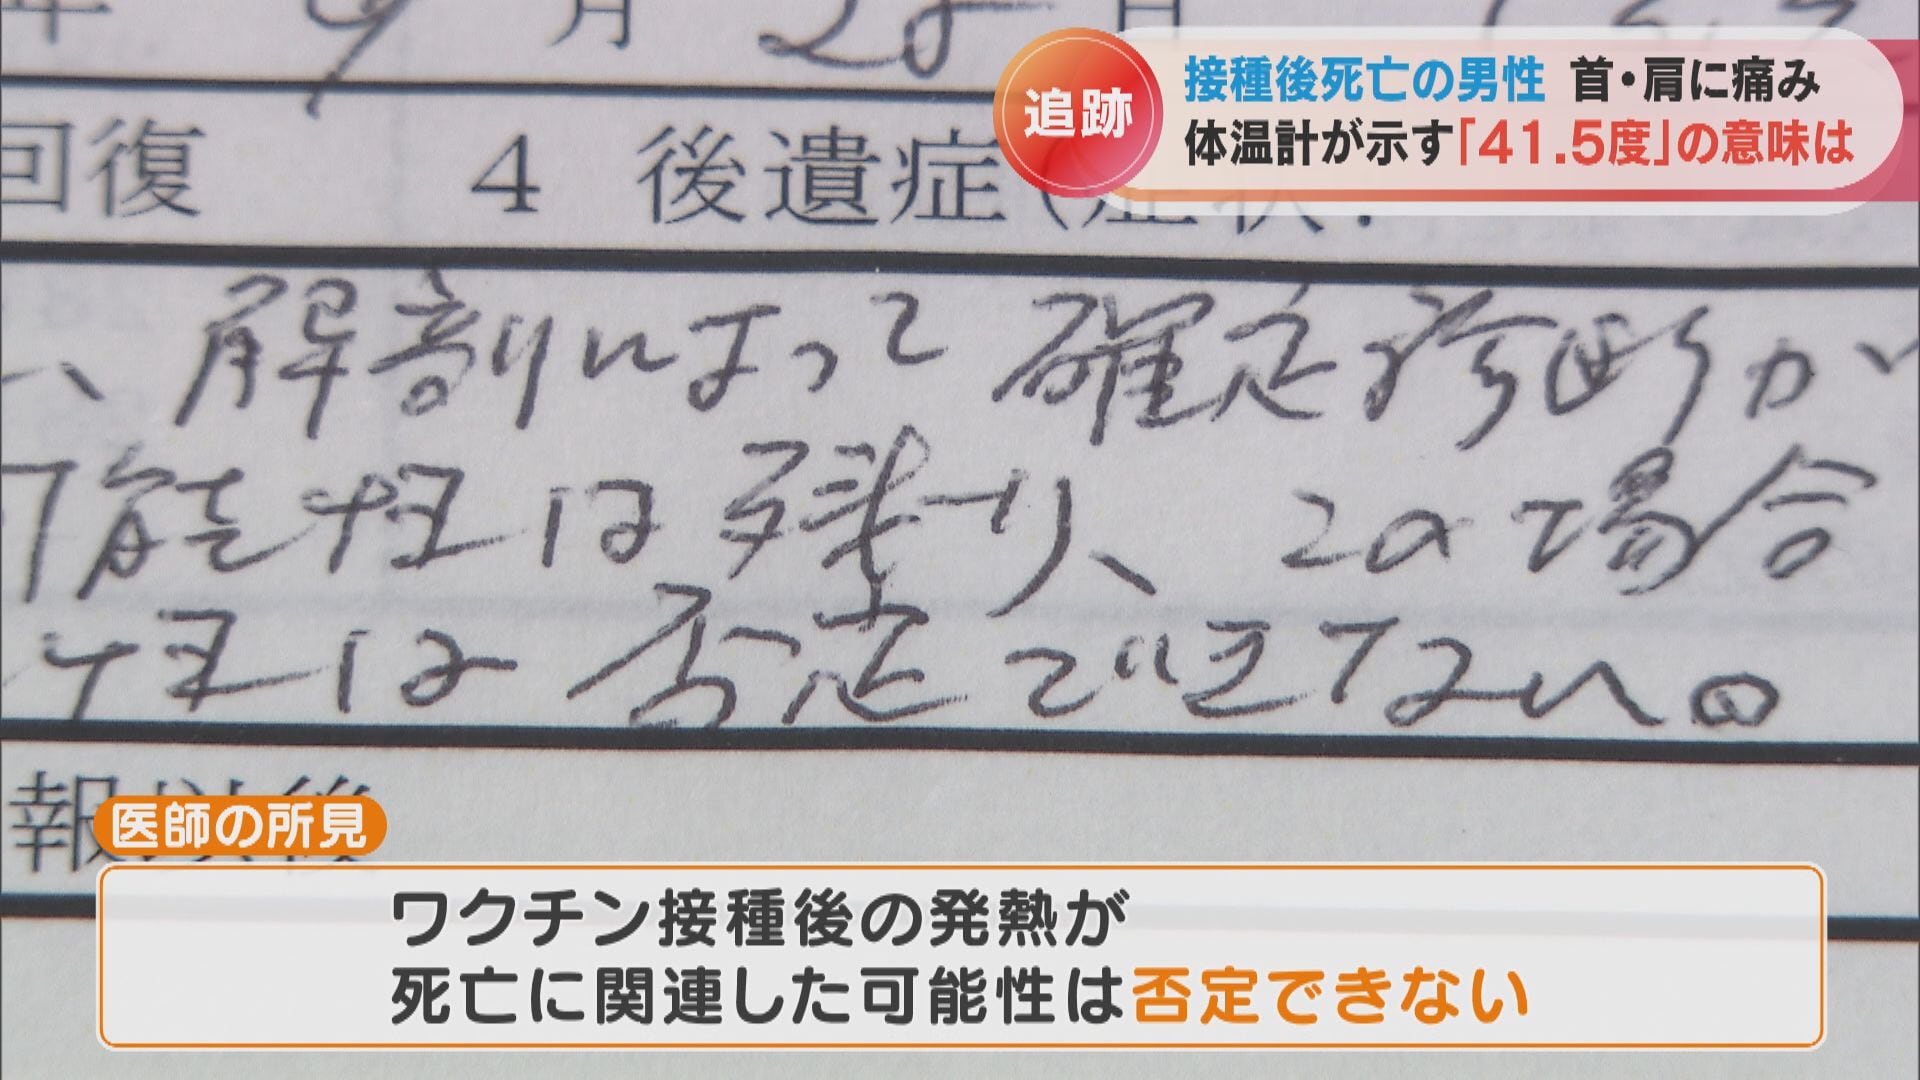 年 9月 28日
追跡
接種後死亡の男性 首・肩に痛み
体温計が示す「41.5度」の意味は
回復 4 後遺症(症状:
、解剖によって確定診断が
可能性は残り、この場合
性は否定できない。
報以後
医師の所見
ワクチン接種後の発熱が
死亡に関連した可能性は否定できない